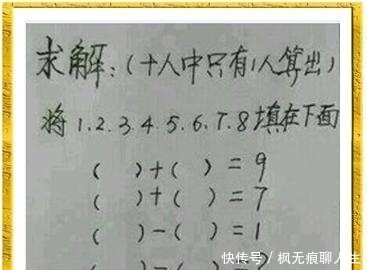 求解:(十人中只有1人算出)
将1.2.3.4.5.6.7.8填在下面
( )+( )=9
( )+( )=7
( )-( )=1
( )-( )=
快传号/枫无痕聊人生